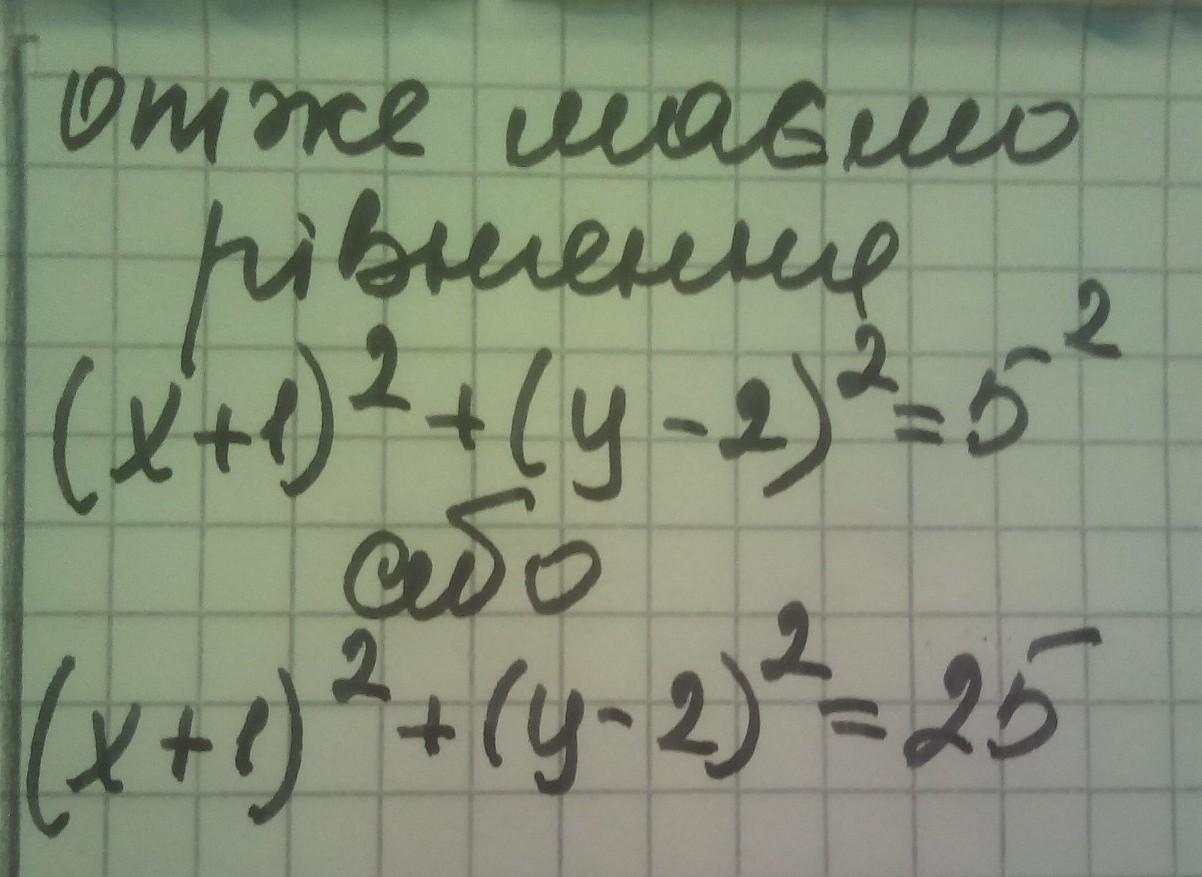 отже маємо
рівняння
(x+1)² + (y-2)² = 5²
або
(x+1)² + (y-2)² = 25